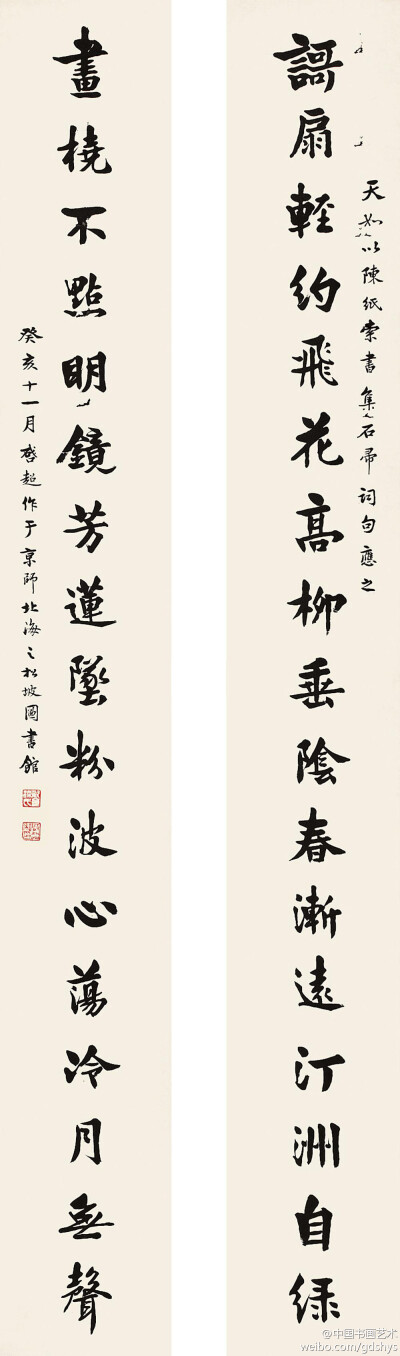 天如以陳紙索書集石帚詞句應之
謌扇輕約飛花高柳垂陰春漸遠汀洲自绿
畫橈不點明鏡芳蓮墜粉波心蕩冷月無聲
癸亥十一月啓超作于京師北海之松坡圖書館
@中国书画艺术
weibo.com/gdshys